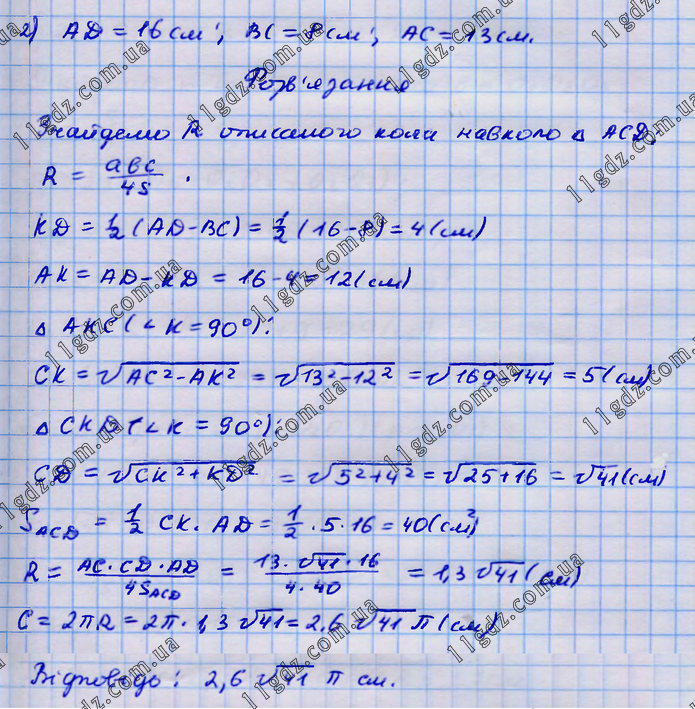 2) AD = 16 см; BC = 8 см; AC = 13 см.
Розв'язання
Знайдемо R описаного кола навколо Δ ACD.
R = abc/4S.
KD = 1/2 (AD-BC) = 1/2 (16-8) = 4 (см)
AK = AD - KD = 16 - 4 = 12 (см)
Δ AKC (∠K = 90°):
CK = √(AC² - AK²) = √(13² - 12²) = √(169 - 144) = 5 (см)
Δ CKD (∠K = 90°):
CD = √(CK² + KD²) = √(5² + 4²) = √(25 + 16) = √41 (см)
S_ACD = 1/2 CK · AD = 1/2 · 5 · 16 = 40 (см²)
R = AC·CD·AD/4S_ACD = 13·√41·16/4·40 = 1,3√41 (см)
C = 2πR = 2π · 1,3√41 = 2,6√41 π (см)
Відповідь: 2,6√41 π см.
11gdz.com.ua